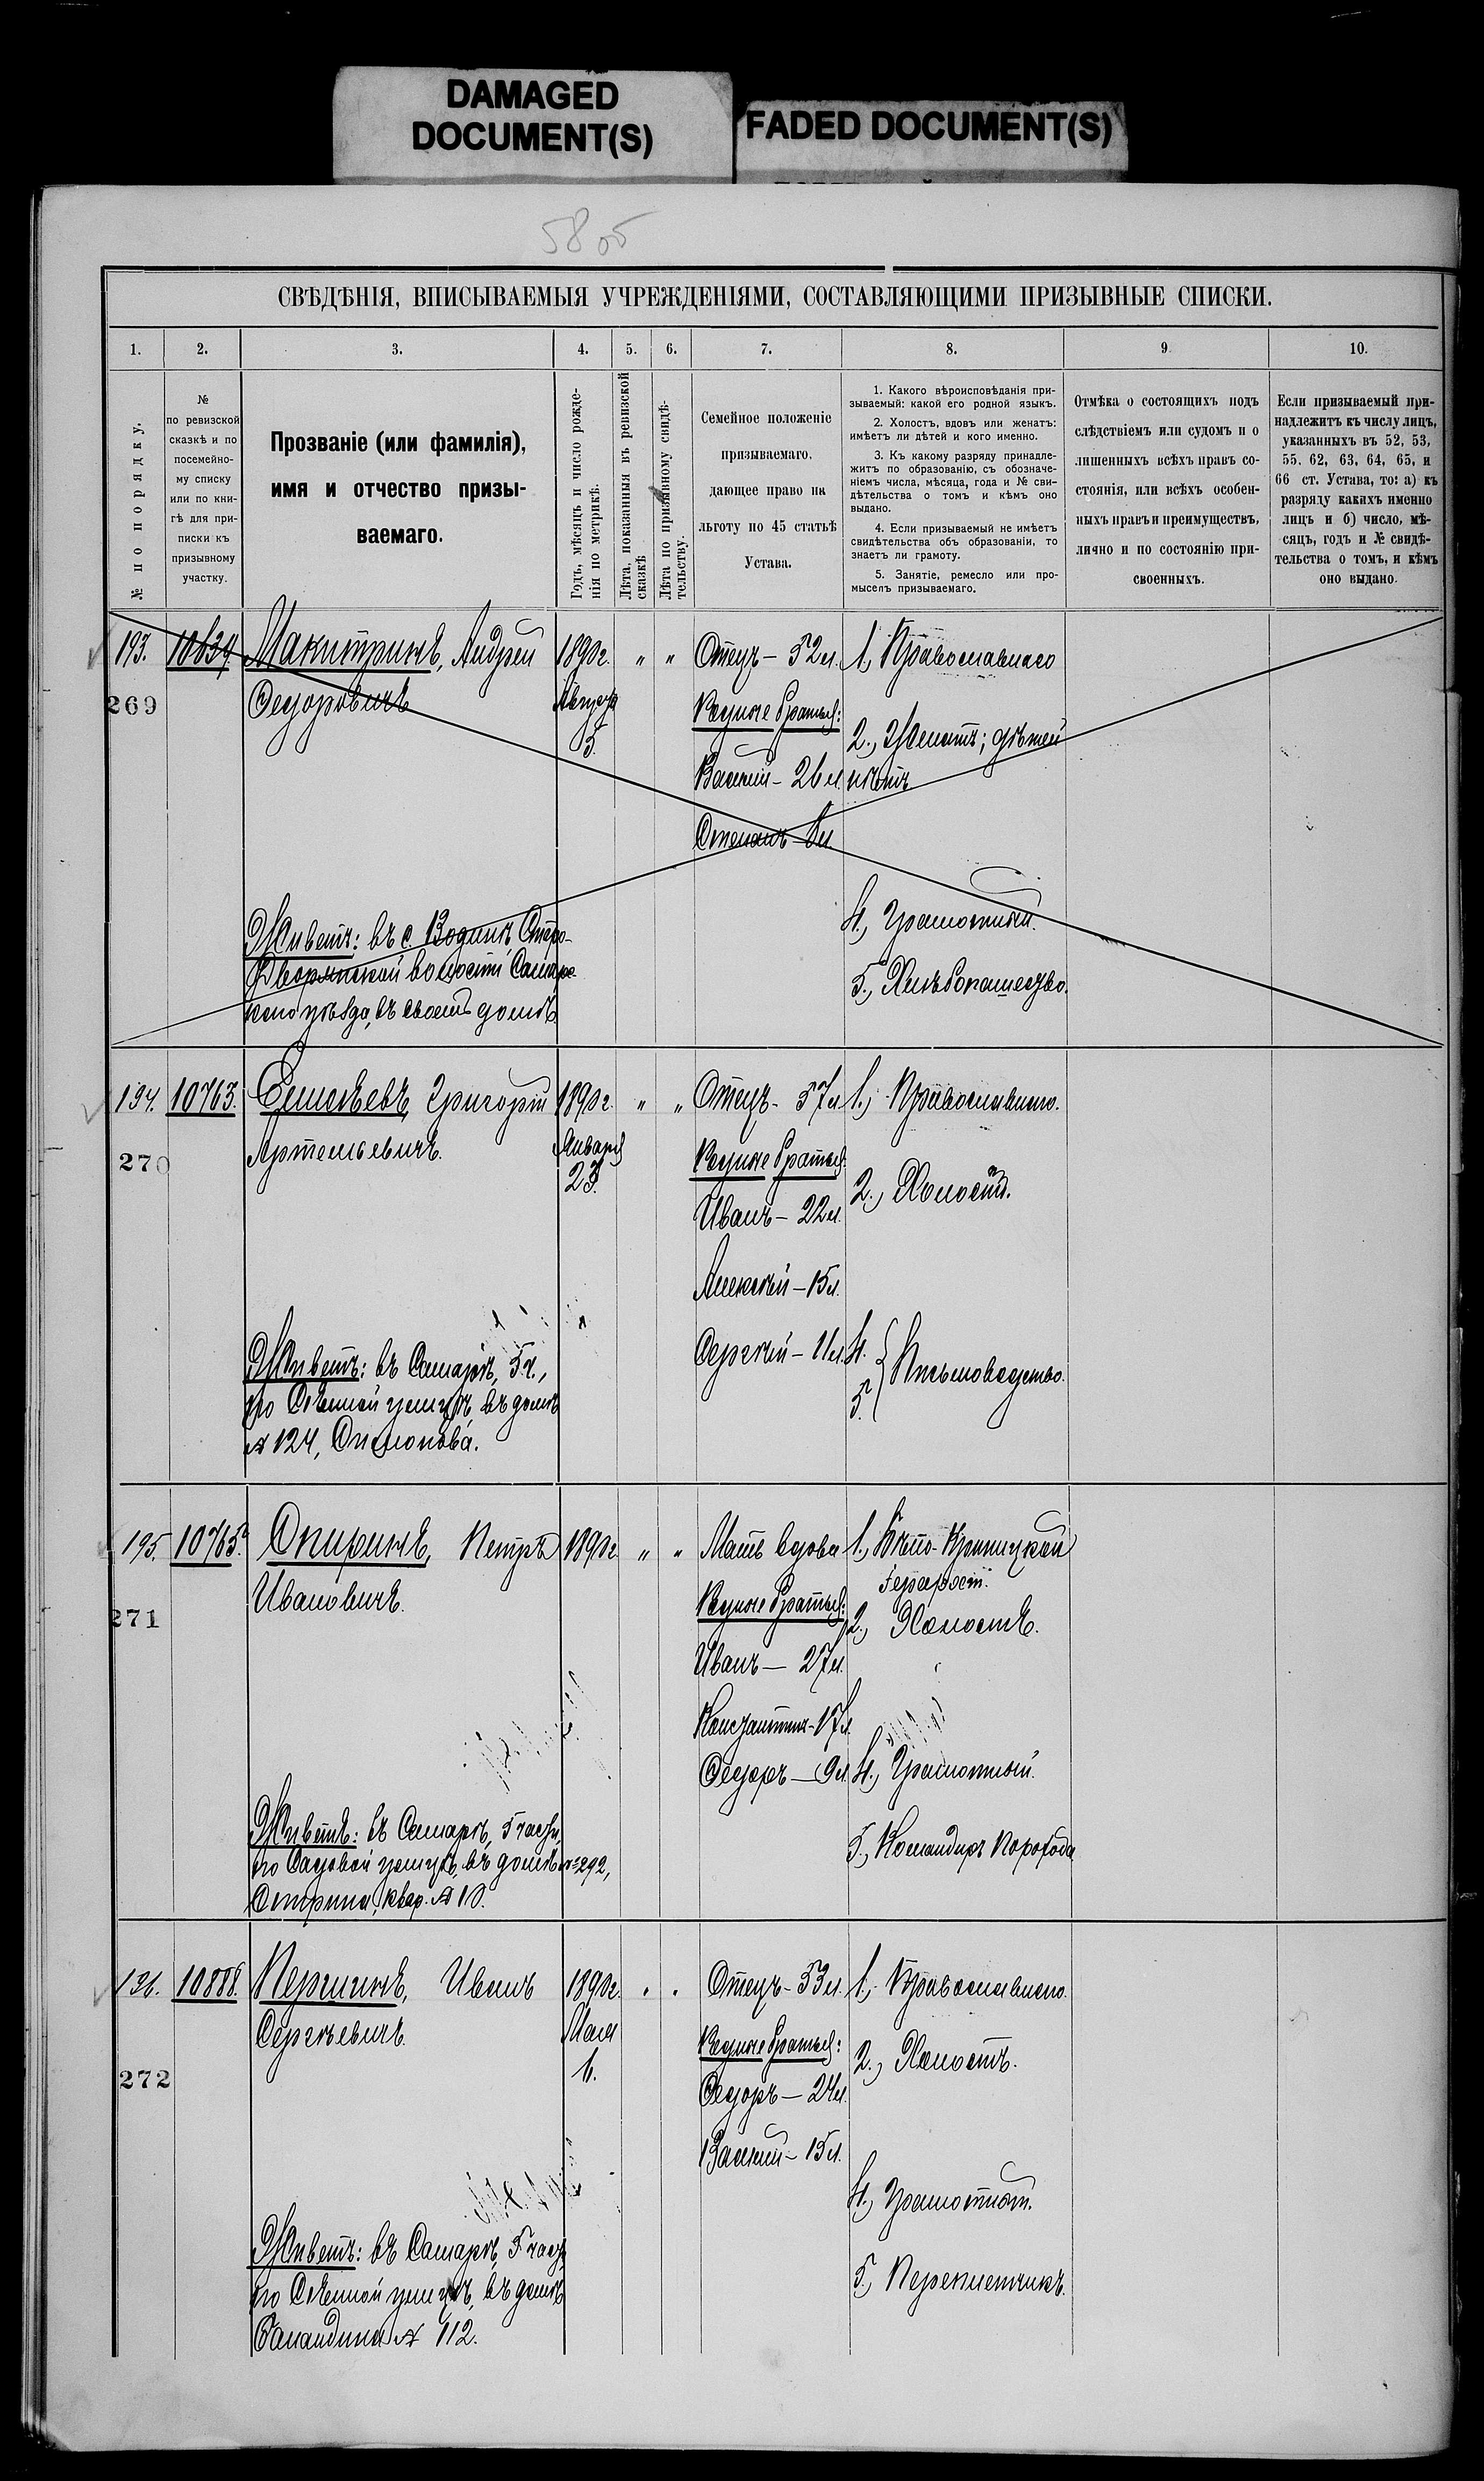 DAMAGED
DOCUMENT(S)
FADED DOCUMENT(S)
СВѢДѢНІЯ, ВПИСЫВАЕМЫЯ УЧРЕЖДЕНІЯМИ, СОСТАВЛЯЮЩИМИ ПРИЗЫВНЫЕ СПИСКИ.
1. 2. 3. 4. 5. 6. 7. 8. 9. 10.
№ по порядку.
№
по ревизской
сказкѣ и по
посемейно-
му списку
или по кни-
гѣ для при-
писки къ
призывному
участку.
Прозваніе (или фамилія),
имя и отчество призы-
ваемаго.
Годъ, мѣсяцъ и число рожде-
нія по метрикѣ.
Лѣта, показанныя въ ревизской
сказкѣ
Лѣта по призывному свидѣ-
тельству.
Семейное положеніе
призываемаго,
дающее право на
льготу по 45 статьѣ
Устава.
1. Какого вѣроисповѣданія при-
зываемый: какой его родной языкъ.
2. Холостъ, вдовъ или женатъ:
имѣетъ ли дѣтей и кого именно.
3. Къ какому разряду принадле-
житъ по образованію, съ обозначе-
ніемъ числа, мѣсяца, года и № сви-
дѣтельства о томъ и кѣмъ оно
выдано.
4. Если призываемый не имѣетъ
свидѣтельства объ образованіи, то
знаетъ ли грамоту.
5. Занятіе, ремесло или про-
мыселъ призываемаго.
Отмѣка о состоящихъ подъ
слѣдствіемъ или судомъ и о
лишенныхъ всѣхъ правъ со-
стоянія, или всѣхъ особен-
ныхъ правъ и преимуществъ,
лично и по состоянію при-
своенныхъ.
Если призываемый при-
надлежитъ къ числу лицъ,
указанныхъ въ 52, 53,
55. 62, 63, 64, 65, и
66 ст. Устава, то: а) къ
разряду какихъ именно
лицъ и б) число, мѣ-
сяцъ, годъ и № свидѣ-
тельства о томъ, и кѣмъ
оно выдано.
193. 10639 Макитринъ, Андрей
Федоровичъ
269
1890г.
Августа
5.
" "
Отецъ – 52 л.
Родные братья:
Василій – 26 л.
Степанъ – 8 л.
1., Православнаго
2., Женатъ; дѣтей
нѣтъ
4., Грамотный.
5., Хлѣбопашество.
Живетъ: въ с. Водинѣ Старо-
Дворянской волости Самарс
каго уѣзда, въ своемъ домѣ.
194. 10763. Емельевъ, Григорій
Артемьевичъ.
270
1890г.
Января
23.
" "
Отецъ – 57 л.
Родные братья:
Иванъ – 22 л.
Алексѣй – 15 л.
Сергѣй – 11 л.
1., Православнаго.
2., Холостъ.
4.
5. Письмоводство.
Живетъ: въ Самарѣ, 5 ч.,
по Сѣнной улицѣ, въ домѣ
№ 124, Симонова.
195. 10765. Спиринъ, Петръ
Ивановичъ.
271
1890г
" "
Мать вдова
Родные братья:
Иванъ – 27 л.
Константинъ – 17 л.
Федоръ – 9 л.
1., Бѣло-Криницкой
Іерархіи.
2., Холостъ.
4., Грамотный.
5., Командиръ парохода
Живетъ: въ Самарѣ, 5 части,
по Садовой улицѣ, въ домѣ № 292,
квар. № 10.
196. 10888. Першинъ, Иванъ
Сергѣевичъ.
272
1890г.
Мая
6.
" "
Отецъ – 53 л.
Родные братья:
Федоръ – 24 л.
Василій – 15 л.
1., Православнаго.
2., Холостъ.
4., Грамотный.
5., Переплетчикъ.
Живетъ: въ Самарѣ, 5 части
по Сѣнной улицѣ, въ домѣ
Баландина № 112.